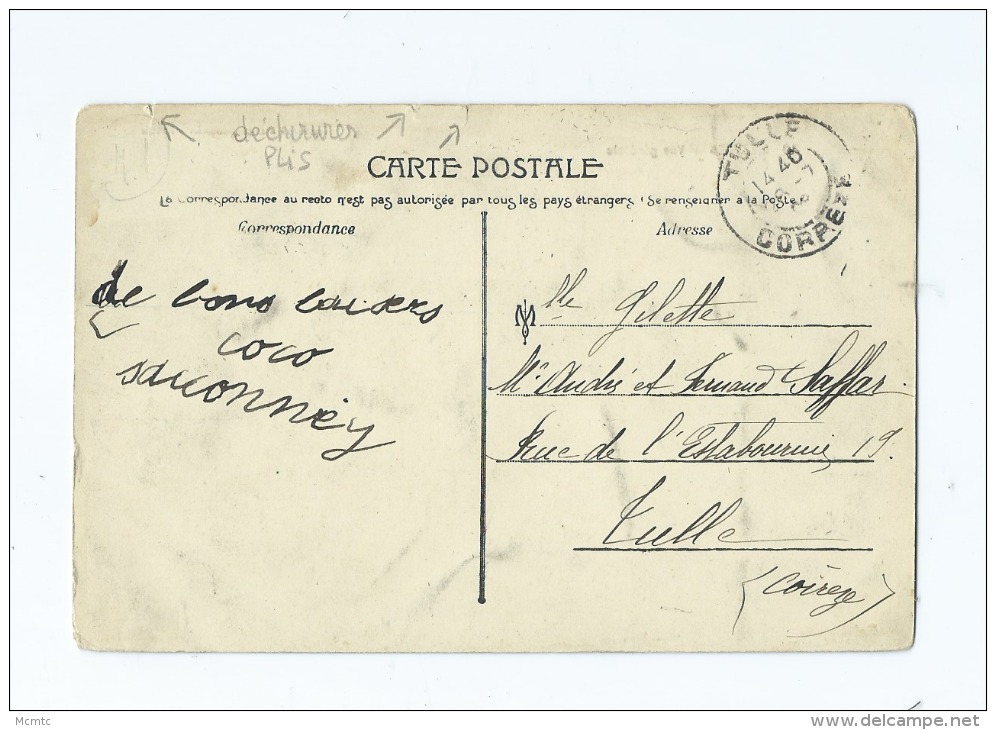 déchirures
Plis
CARTE POSTALE
La Correspondance au recto n'est pas autorisée par tous les pays étrangers (Se renseigner à la Poste)
Correspondance
Adresse
TULLE
14 40
CORREZE
de bons baisers
coco
saconney
Mlle Gilette
Mrs André et Fernand Saffar
Rue de l'Estabournie, 19.
Tulle
(Corrèze)
Mcmtc
delcampe.net